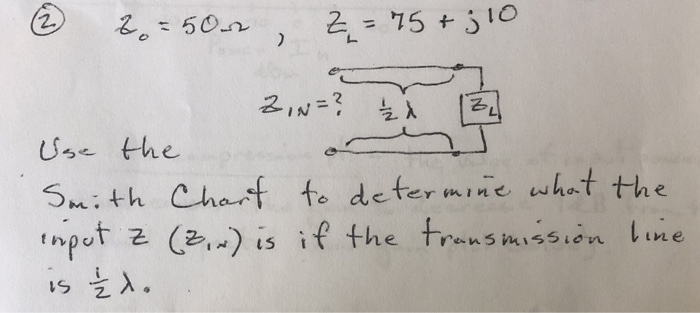 ② Z₀ = 50Ω , Z_L = 75 + j10
Z_IN = ? ½ λ Z_L
Use the
Smith Chart to determine what the
input Z (Z_IN) is if the transmission line
is ½ λ.